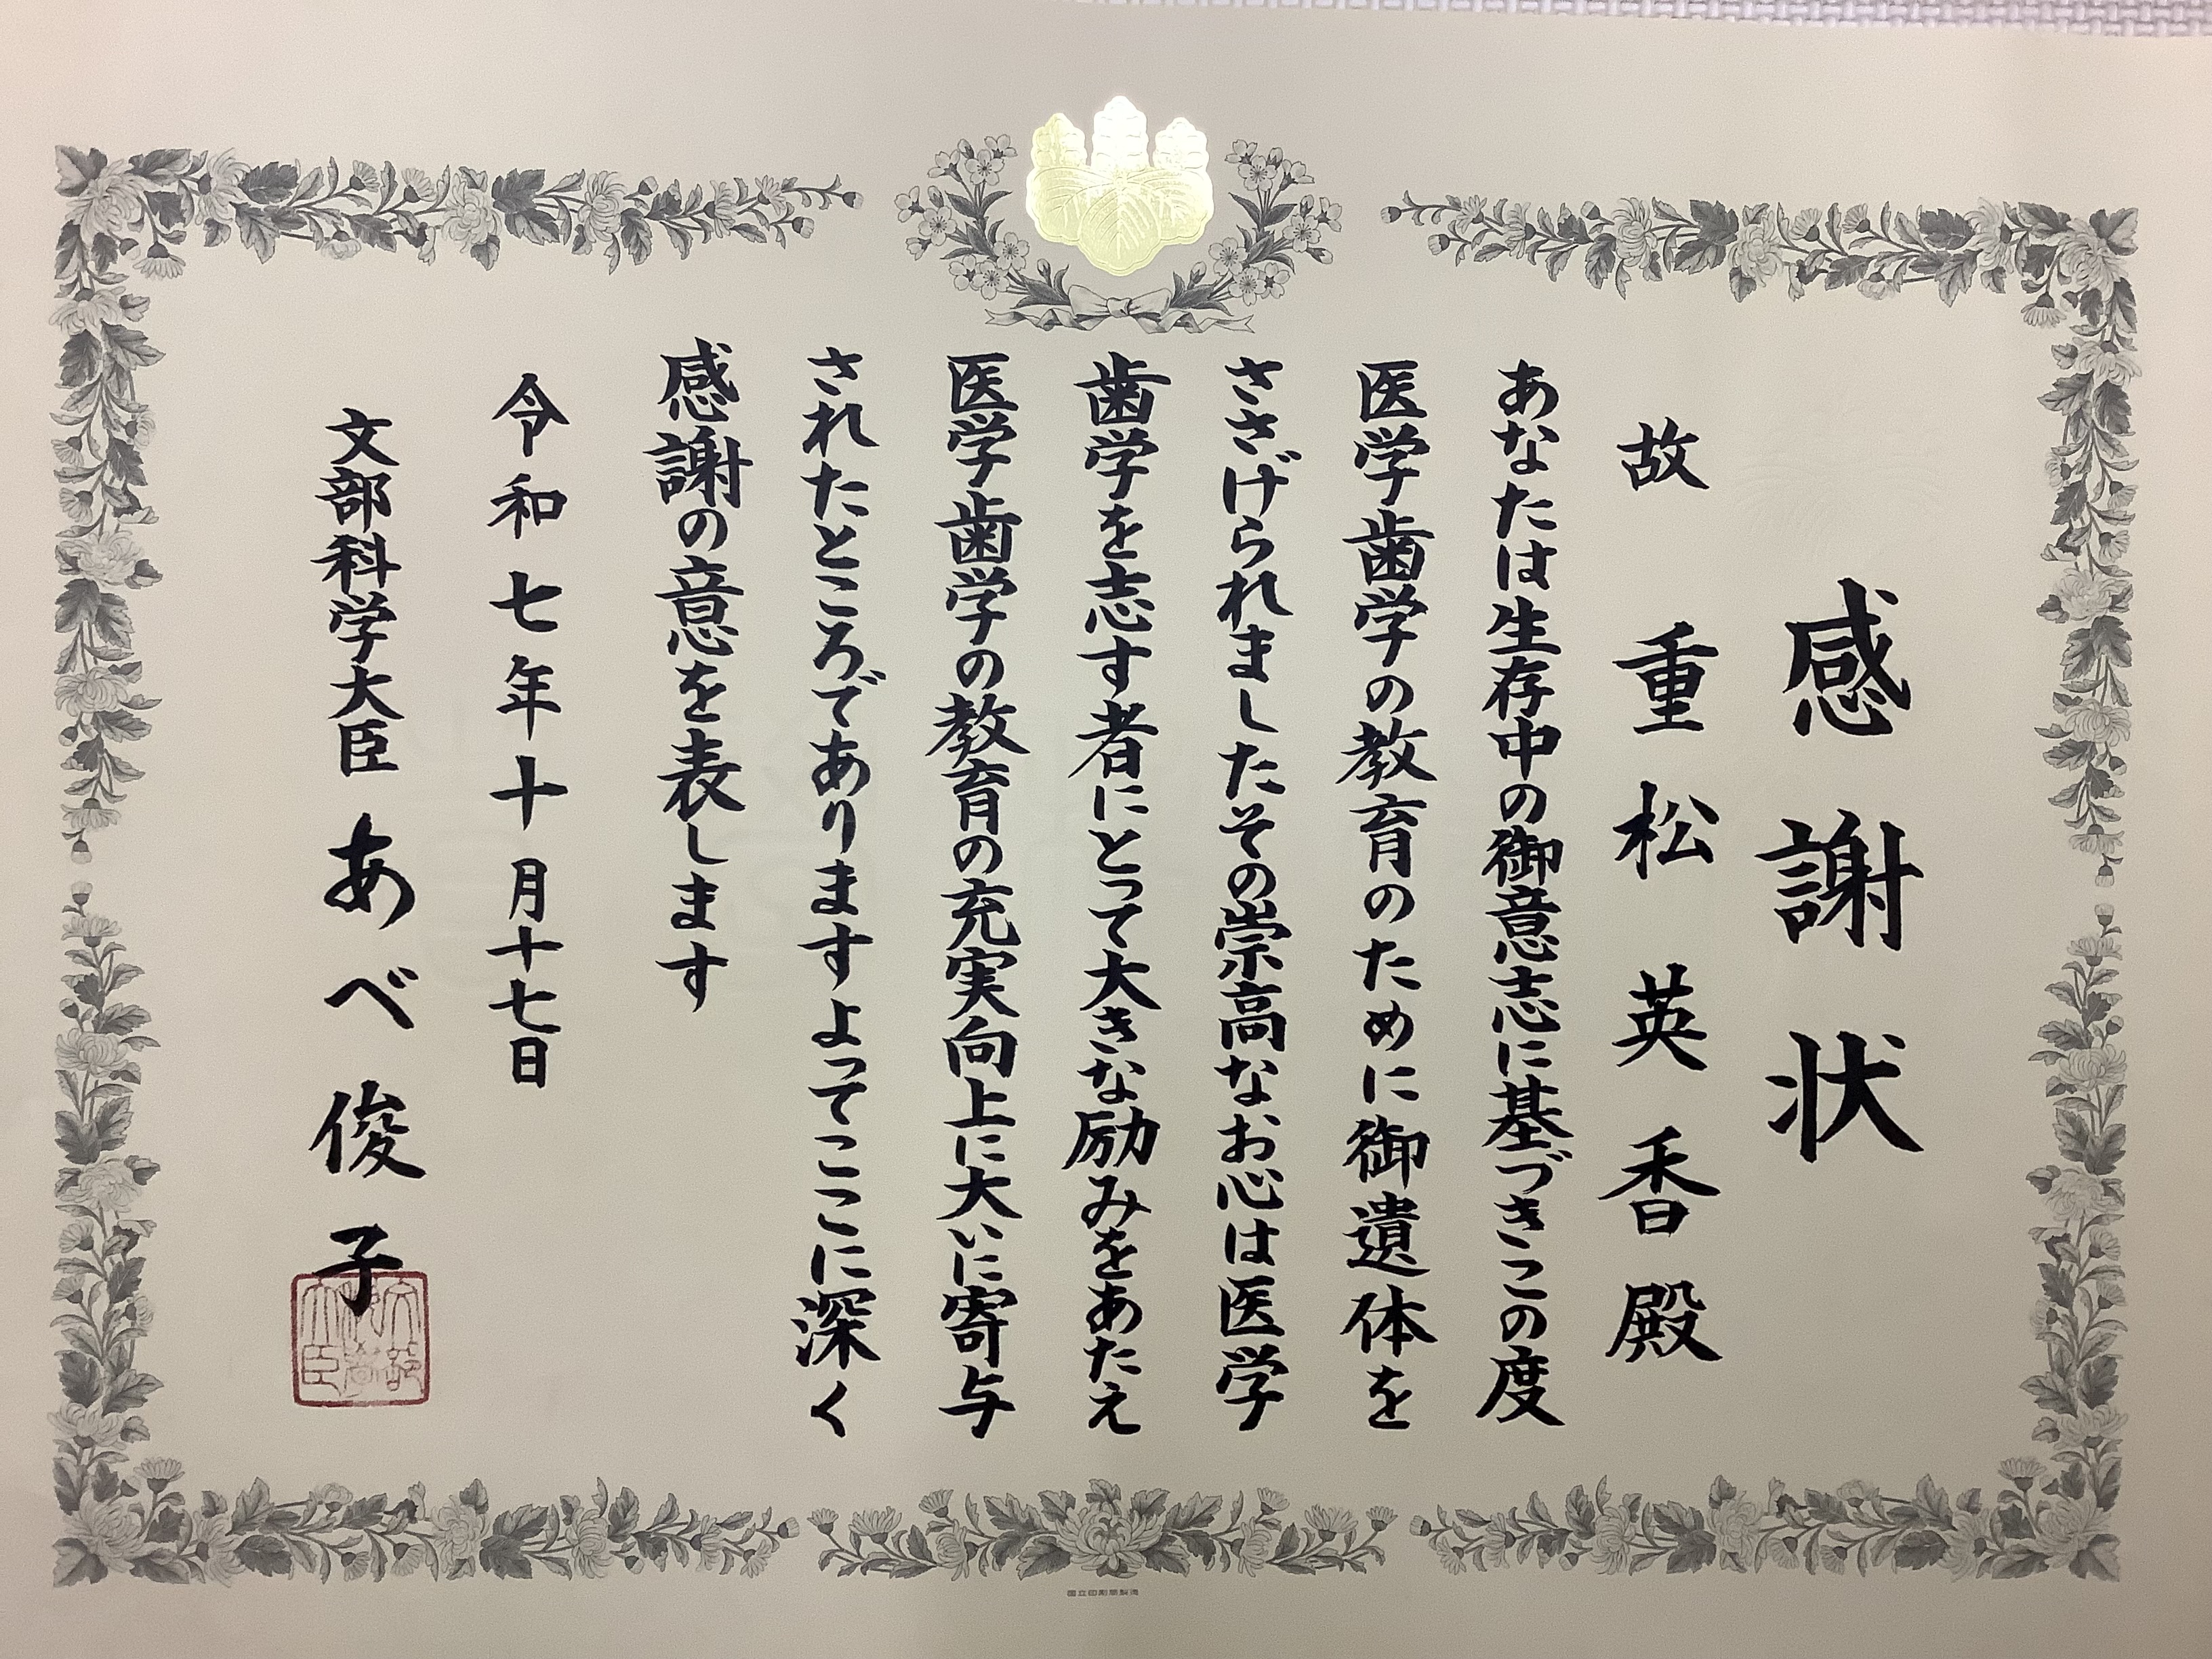 感謝状
故 重松英香殿
あなたは生存中の御意志に基づきこの度
医学歯学の教育のために御遺体を
ささげられましたその崇高なお心は医学
歯学を志す者にとって大きな励みをあたえ
医学歯学の教育の充実向上に大いに寄与
されたところでありますよってここに深く
感謝の意を表します
令和七年十月十七日
文部科学大臣 あべ俊子
文部科学大臣
国立印刷局製造